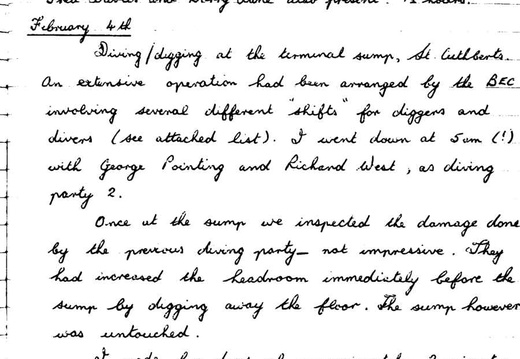 also present.
February 4th
Diving/digging at the terminal sump, St. Cuthberts.
An extensive operation had been arranged by the BEC
involving several different "shifts" for diggers and
divers (see attached list). I went down at 5am (!)
with George Pointing and Richard West, as diving
party 2.
Once at the sump we inspected the damage done
by the previous diving party - not impressive. They
had increased the headroom immediately before the
sump by digging away the floor. The sump however
was untouched.